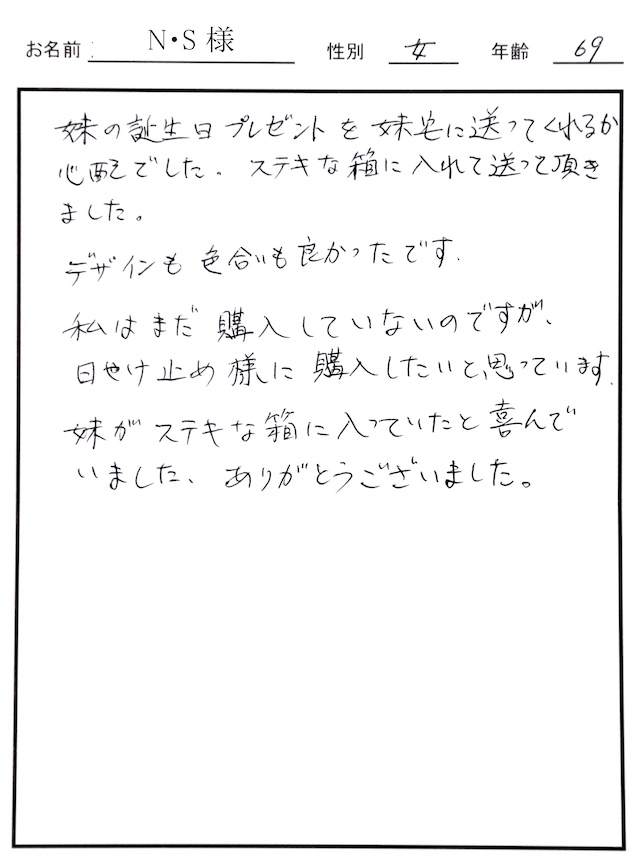 お名前 N・S 様 性別 女 年齢 69
妹の誕生日プレゼントを妹宅に送ってくれるか
心配でした。ステキな箱に入れて送って頂き
ました。
デザインも色合いも良かったです.
私はまだ購入していないのですが、
日やけ止め様に購入したいと思っています.
妹がステキな箱に入っていたと喜んで
いました、ありがとうございました。